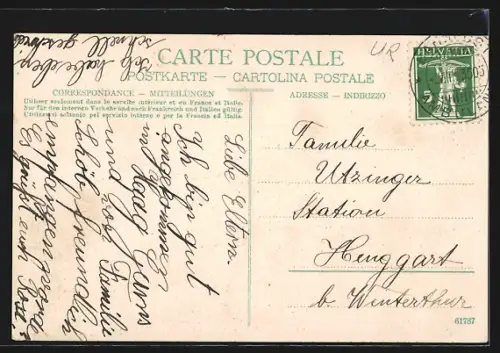 CARTE POSTALE
POSTKARTE - CARTOLINA POSTALE
CORRESPONDANCE - MITTEILUNGEN
ADRESSE - INDIRIZZO
Utiliser seulement dans le service intérieur et en France et Italie.
Nur für den internen Verkehr und nach Frankreich und Italien gültig.
Utilizzarsi soltanto pel servizio interno e per la Francia ed Italia.
UR
HELVETIA
5
Liebe Eltern.
Ich bin gut
angekommen
in Ragaz
und von Familie
schön freundlich
empfangen worden
Es grüsst euch
Ich habe
schnell geschrieben
Familie
Utzinger
Station
Henggart
b. Winterthur
61787